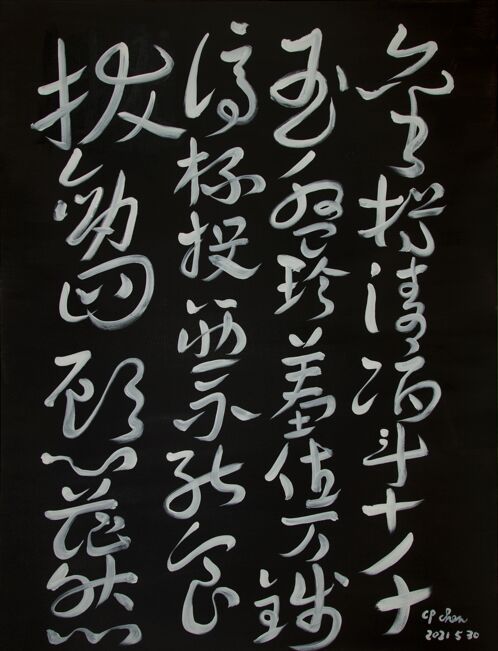 金樽清酒斗十千
玉盤珍羞值万錢
停杯投筯不能食
拔劍四顧心茫然
CP Chen
2021 5 30